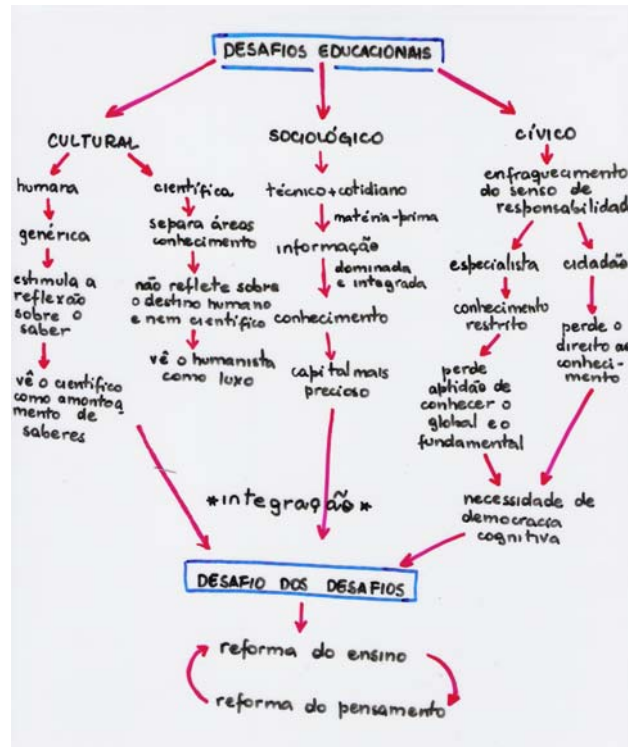 DESAFIOS EDUCACIONAIS
CULTURAL
humana
genérica
estimula a
reflexão
sobre o
saber
vê o científico
como amontoa
mento de
saberes
científica
separa áreas
conhecimento
não reflete sobre
o destino humano
e nem científico
vê o humanista
como luxo
SOCIOLÓGICO
técnico+cotidiano
matéria-prima
informação
dominada
e integrada
conhecimento
capital mais
precioso
CÍVICO
enfraquecimento
do senso de
responsabilidad
especialista
conhecimento
restrito
perde
aptidão de
conhecer o
global e o
fundamental
cidadão
perde o
direito ao
conheci-
mento
necessidade de
democracia
cognitiva
*integração*
DESAFIO DOS DESAFIOS
reforma do ensino
reforma do pensamento